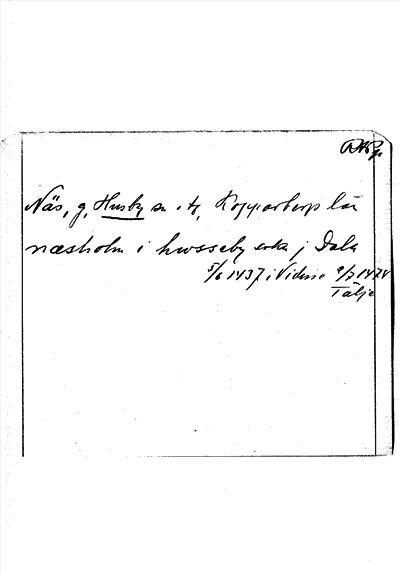 RAp.
Näs, g, Husby sn o. tg, Kopparbergs län
næsholm i hwsseby sokn j Dala
5/6 1437 i Vidim. 9/7 1474
Tälje